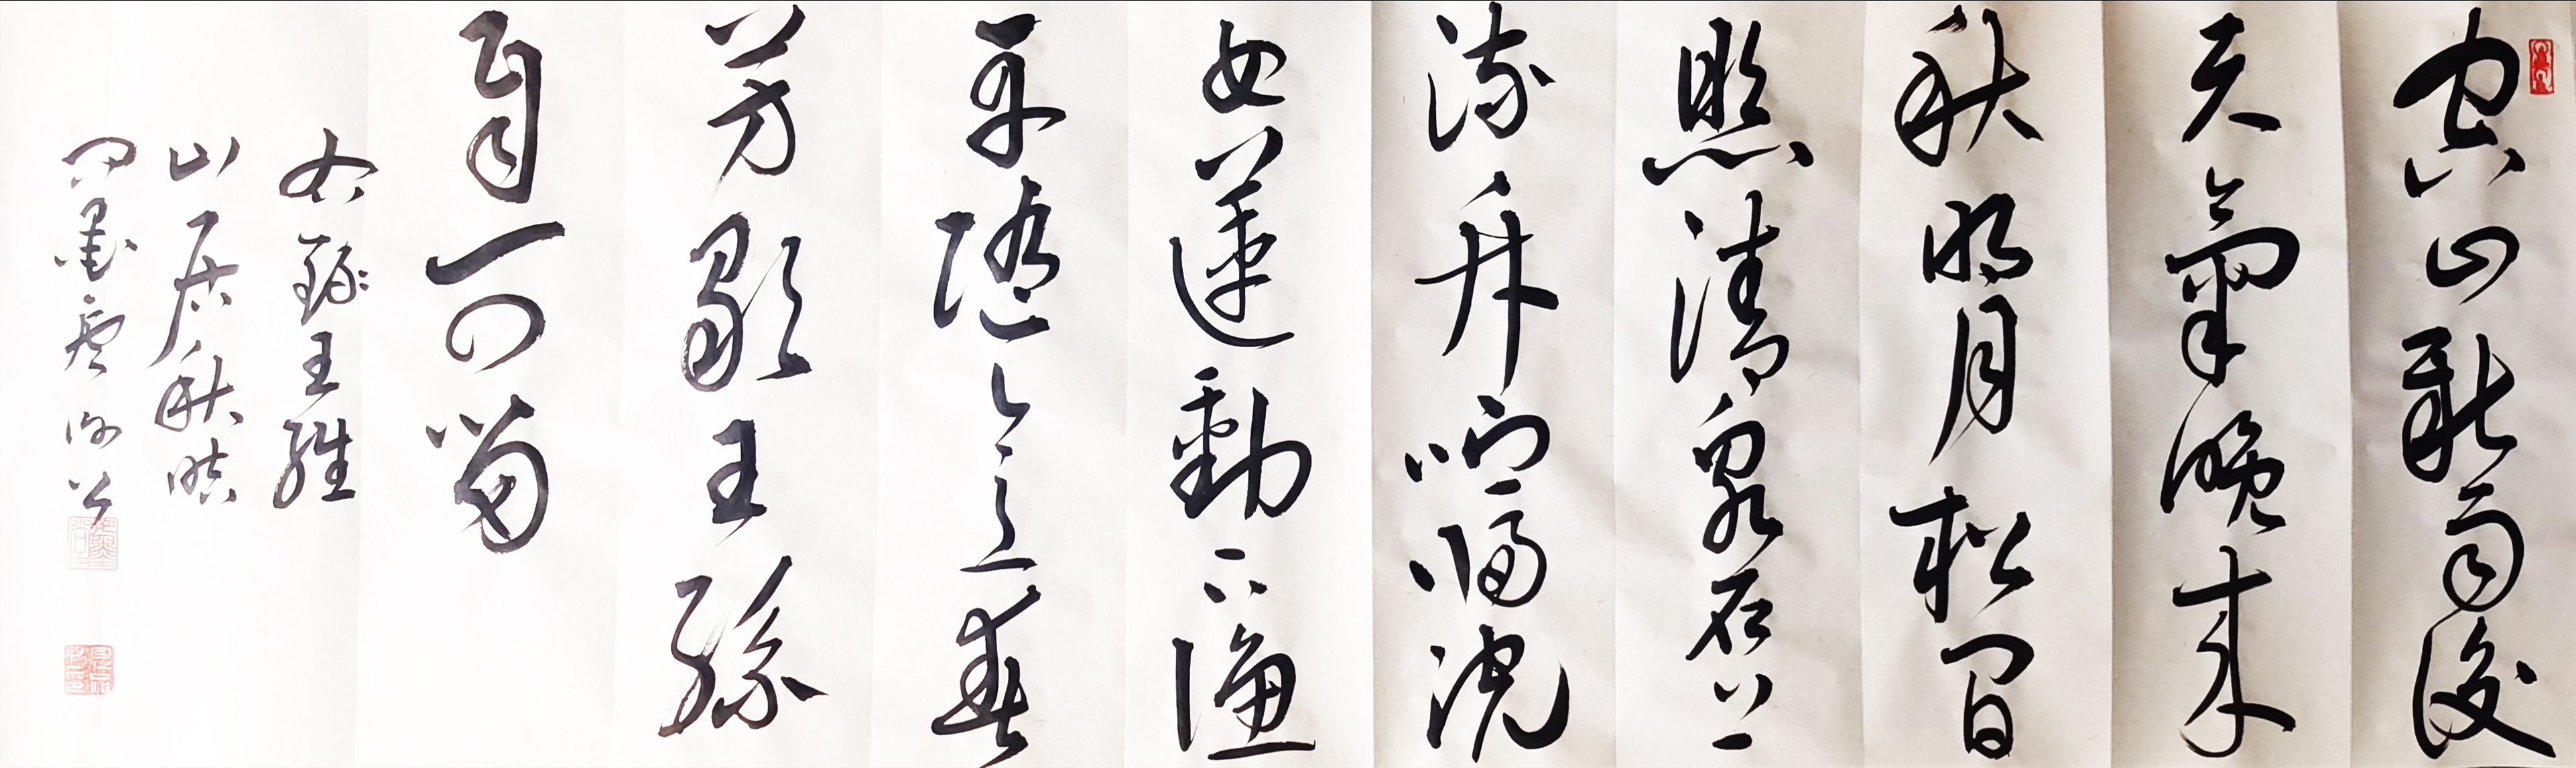 空山新雨後
天氣晚來
秋明月松間
照清泉石上
流竹喧歸浣
女蓮動下漁
舟隨意春
芳歇王孫
自可留
右錄王維
山居秋暝